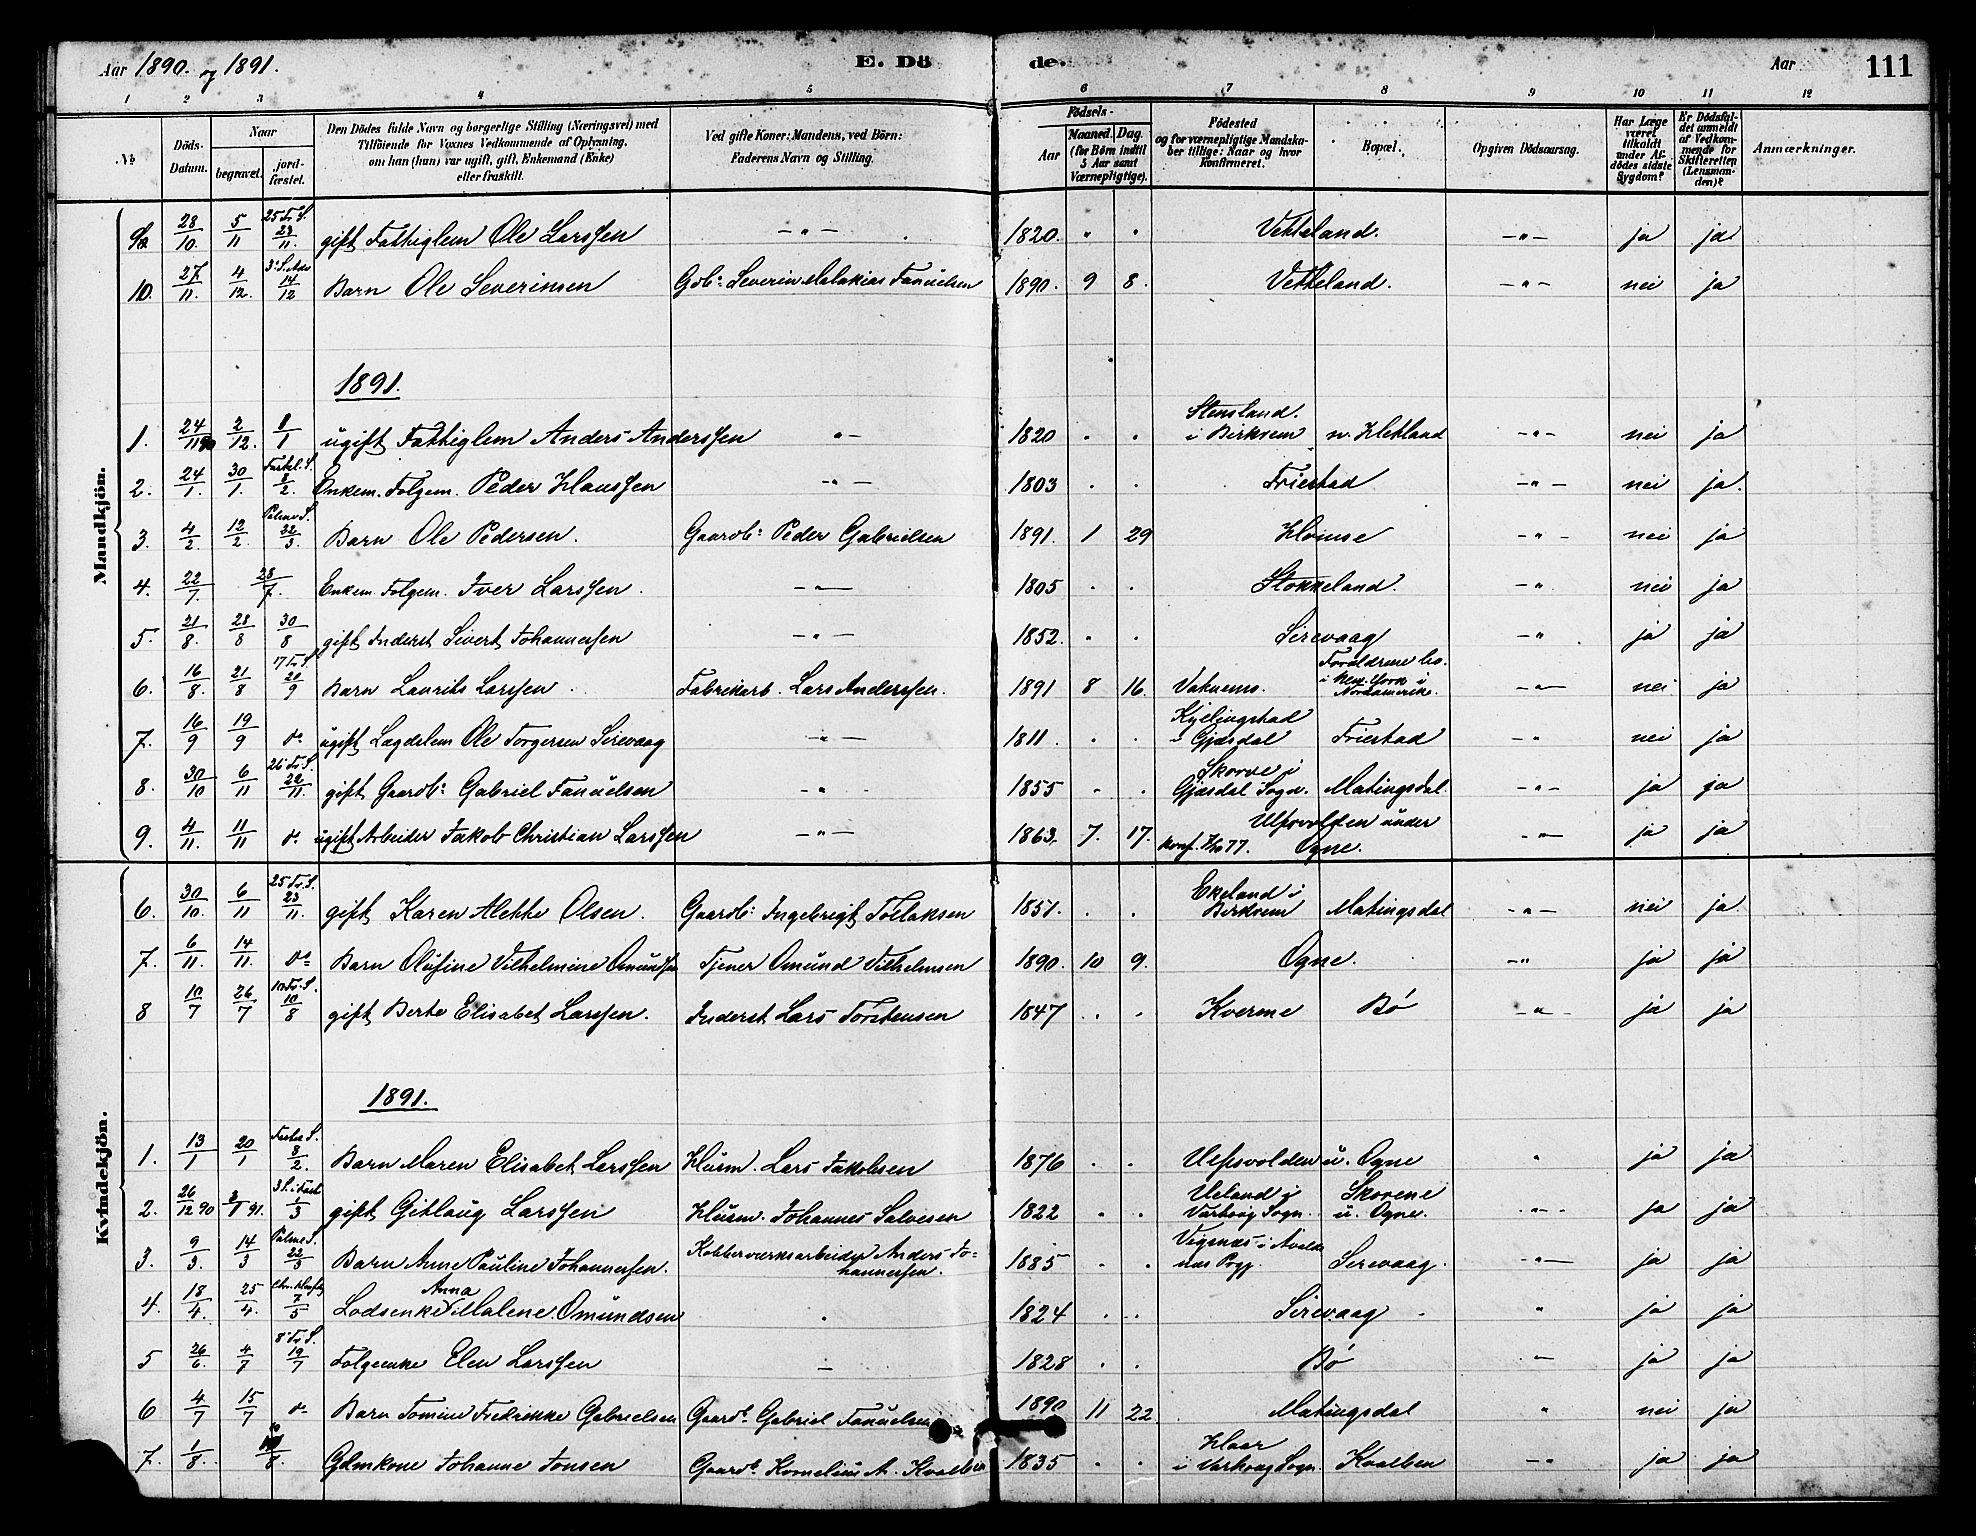 Aar 1890 og 1891. E. Dö de. Aar 111
1 2 3 4 5 6 7 8 9 10 11 12
No Döds-Datum. Naar begravet. jord-fæstet. Den Dödes fulde Navn og borgerlige Stilling (Næringsvei) med Tilföiende for Voxnes Vedkommende af Oplysning, om han (hun) var ugift, gift, Enkemand (Enke) eller fraskilt. Ved gifte Koner: Mandens, ved Börn: Faderens Navn og Stilling. Födsels- Aar Maaned. Dag. (for Börn indtil 5 Aar samt Værnepligtige). Födested og for værnepligtige Mandskaber tillige: Naar og hvor konfirmeret. Bopæl. Opgiven Dödsaarsag. Har Læge været tilkaldt under Afdödes sidste Sygdom? Er Dödsfaldet anmeldt af Vedkommende for Skifteretten (Lensmanden)? Anmærkninger.
Mandkjön.
9 28/10. 5/11 25 Tr. S. 23/11. gift Fattiglem Ole Larssen -"- 1820. " " Vetteland. -"- ja ja
10. 27/11. 4/12. 3. S. Adv 14/12 Barn Ole Severinsen Gdb: Severin Malakias Fanuelsen 1890. 9 8. Vetteland. -"- nei ja
1891.
1. 24/11 90 2/12. 8/1 ugift Fattiglem Anders Anderssen "- 1820 . . Stensland i Birkrem n. Hetland -"- nei ja
2. 24/1. 30/1. 8/2. Enkem. Folgem. Peder Klaussen -"- 1803 . . Friestad -"- nei ja.
3. 4/2. 12/2. Palme S. 22/3. Barn Ole Pedersen. Gaardb: Peder Gabrielsen 1891. 1 29 -"- nei ja
4. 22/7. 28/7. Enkem. Folgem. Iver Larssen. -"- 1805 . . Stokkeland. -" nei ja
5. 21/8. 28/8 30/8 gift Inderst Sivert Johannessen -"- 1852. . . Sirevaag -" ja ja
6. 16/8. 21/8 17 Tr. S. 20/9 Barn Laurits Larssen. Fabrikarb. Lars Anderssen. 1891 8 16. Forældrene bo. i New York i Nordamerika. -"- nei ja
7. 16/9 19/9 do ugift Lægdslem Ole Torgersen Sirevaag -"- 1811. . . Kyelingstad i Gjæsdal Friestad -" nei ja
8. 30/10 6/11 26 Tr. S. 22/11. gift Gaardb: Gabriel Fanuelsen -"- 1855 . . Skorve i Gjæsdal Sogn. Matingsdal. -"- ja ja
9. 4/11. 11/11 do ugift Arbeider Jakob Christian Larssen -"- 1863. 7. 17. Ulfsvolden under Ogne. konf. 77. -"- ja ja
Kvindekjön.
6. 30/10. 6/11 25 Tr. S. 23/11. gift Karen Alette Olsen. Gaardb: Ingebrigt Tollaksen 1857. . . Ekeland i Birkrem Matingsdal -"- nei ja
7. 6/11. 14/11. do Barn Olufine Vilhelmine Omundsen Tjener Omund Vilhelmsen 1890. 10 9. Ogne. -"- ja ja
8 10/7 26/7 10 Tr. S. 10/8 gift Berte Elisabet Larssen. Inderst Lars Torstensen 1847 . . Kverme Bø -"- ja ja
1891.
1. 13/1 20/1 8/2. Barn Maren Elisabet Larssen Husm. Lars Jakobsen 1876 . . Ulfsvolden u. Ogne " ja ja
2. 26/12 90 3/1 91. 3 S. i Fast 1/3 gift Gitlaug Larssen Husm. Johannes Salvesen 1822 . . Ueland i Varhaug Sogn. Skorene u. Ogne. -"- ja ja
3. 9/3. 14/3 Palme S. 22/3 Barn Anne Pauline Johannessen. Kobberverksarbeider Anders Johannessen. 1885 . . Vigsnes i Avaldsnes Pgj. Sirevaag. -"- ja ja
4. 18/4. 25/4. 7/5 Lodsenke Anna Malene Omundsen . 1824 . . Sirevaag " ja ja
5 26/6. 4/7 8 Tr. S. 19/7 Folgeenke Elen Larssen — 1828 . . Bø — ja ja
6 4/7 15/7 do Barn Tomine Fredrikke Gabrielsen Gaardb. Gabriel Fanuelsen 1890 11 22 Matingsdal " nei ja
7. 1/8. Gdmkone Johanne Jonsen Gaardb. Kornelius A. Kvalben 1835 . . i Varhaug Sogn. Kvalben -" ja ja